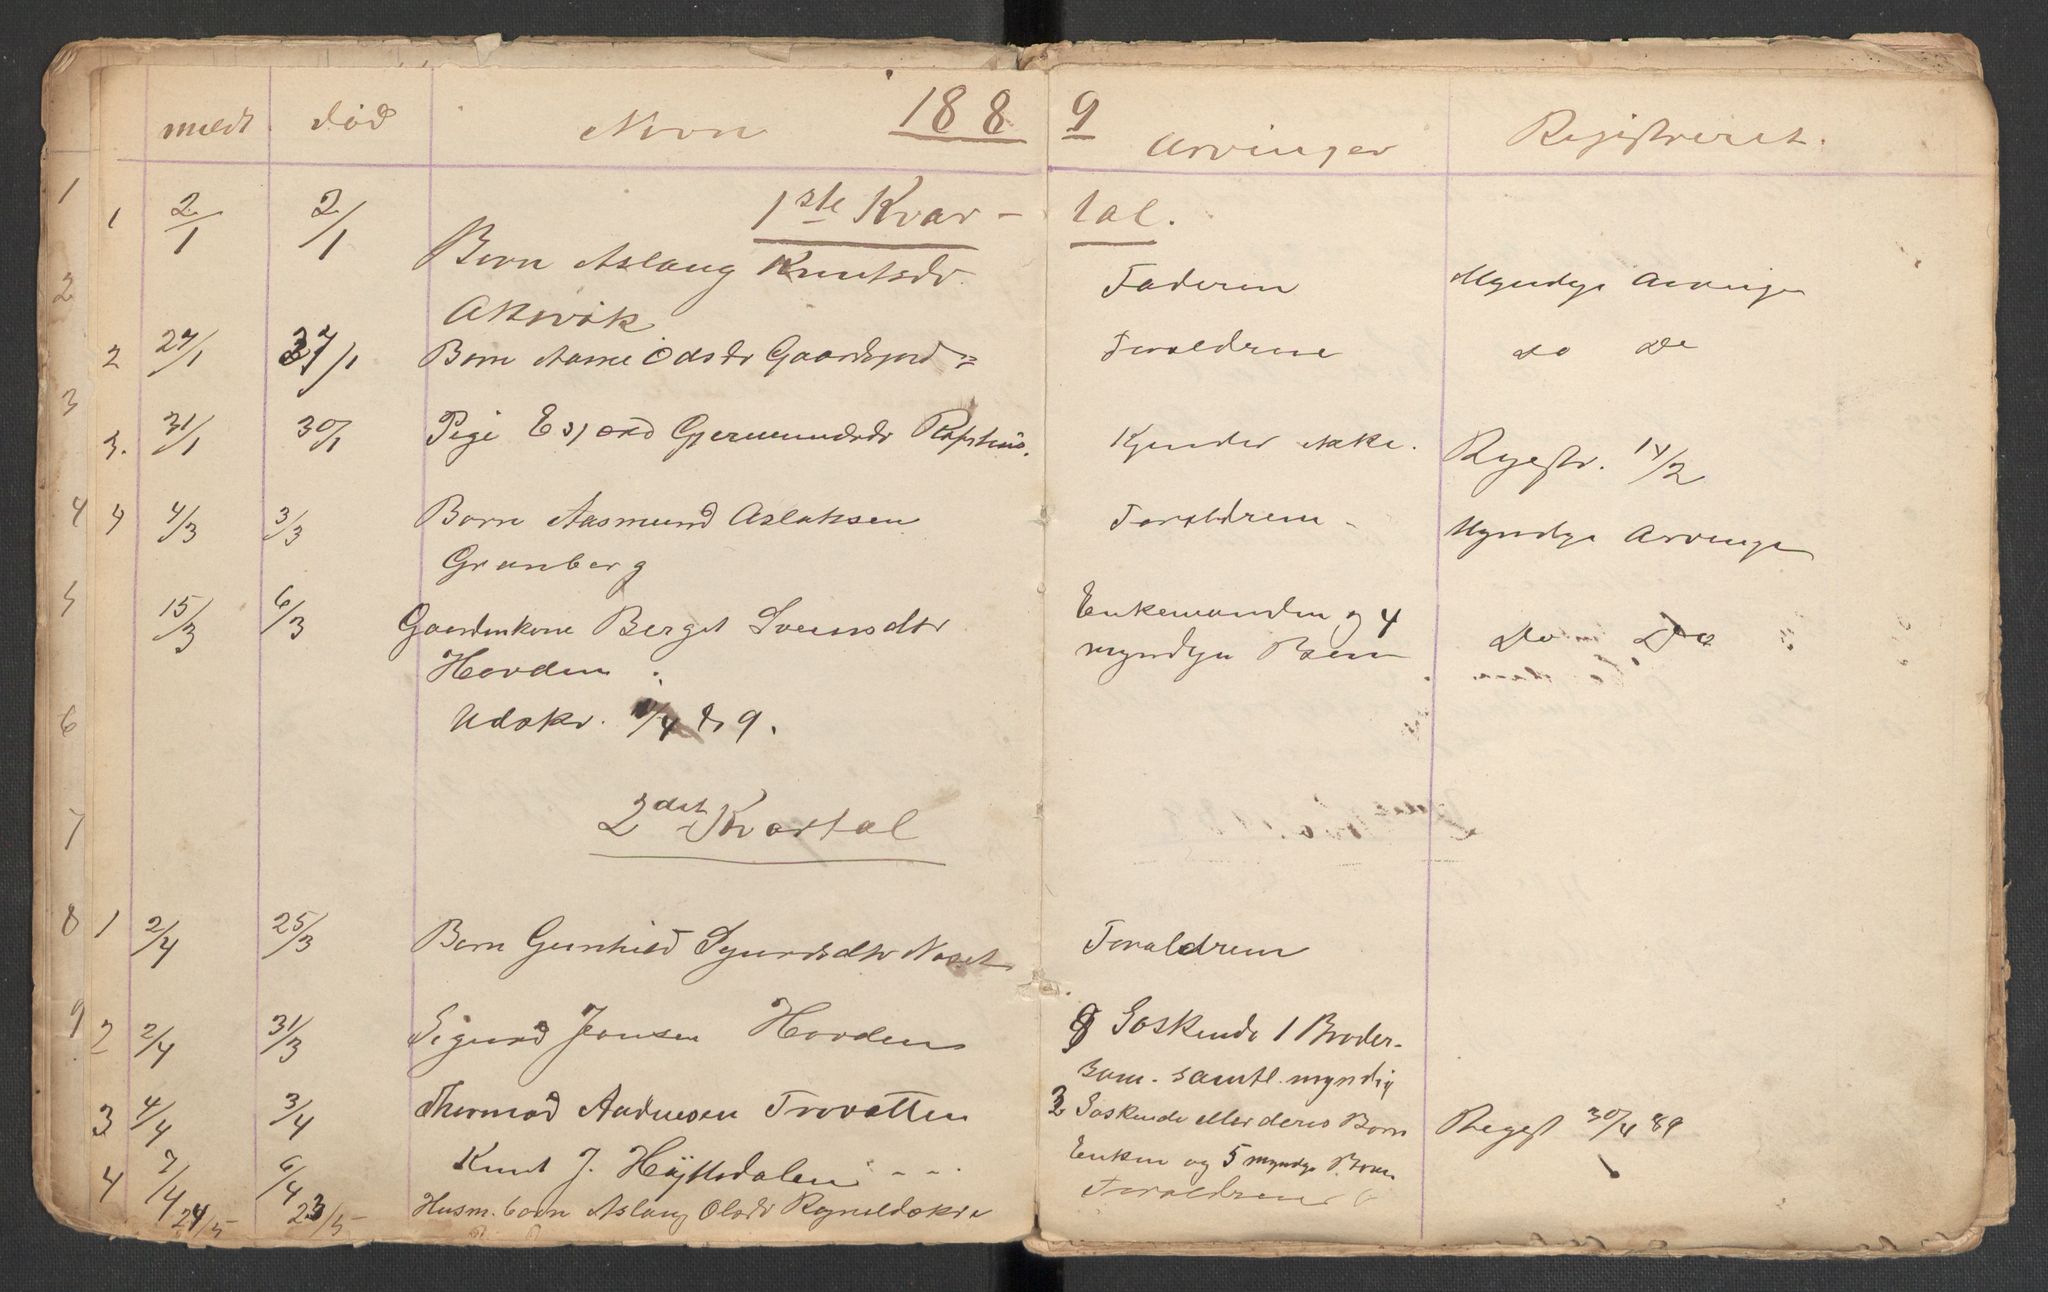 1889
meldt død Navn Arvinger Registreret.
1ste Kvar- tal.
1 2/1 2/1 Barn Aslaug Knutsdr. Faderen Myndige Arvinge
Aknvik
2 27/1 27/1 Barn Aasne Odsdr Gaardsjord Foraldrene Do Do
3. 31/1 30/1 Pige Gjermundsdr Kjender ikke. Regestr. 14/2
4 4/3 3/3 Barn Aasmund Aslaksen Foraldrene - Myndige Arvinge
Granberg
15/3 6/3 Gaardmkone Berget Sveinsdtr Enkemanden og 4
Hovden myndige Børn Do Do
Udskr. 1/4 89.
2det Kvartal
1 2/4 25/3 Barn Gunhild Sgurdsdtr Noset Foraldrene
2 2/4 31/3 Sigurd Jonsen Hovden 9 Søskende 1 Broder-
Barn. samtl. myndig
3 4/4 3/4 Thormod Aadnesen Trovatten 3 Søskende eller deres Børn Regest 30/4 89
4 7/4 6/4 Knut J. Høttsdalen - - . Enken og 5 myndge Børn
24/5 23/5 Husm. barn Aslaug Olsdr Foraldrene
1
2
3
4
5
6
7
8
9